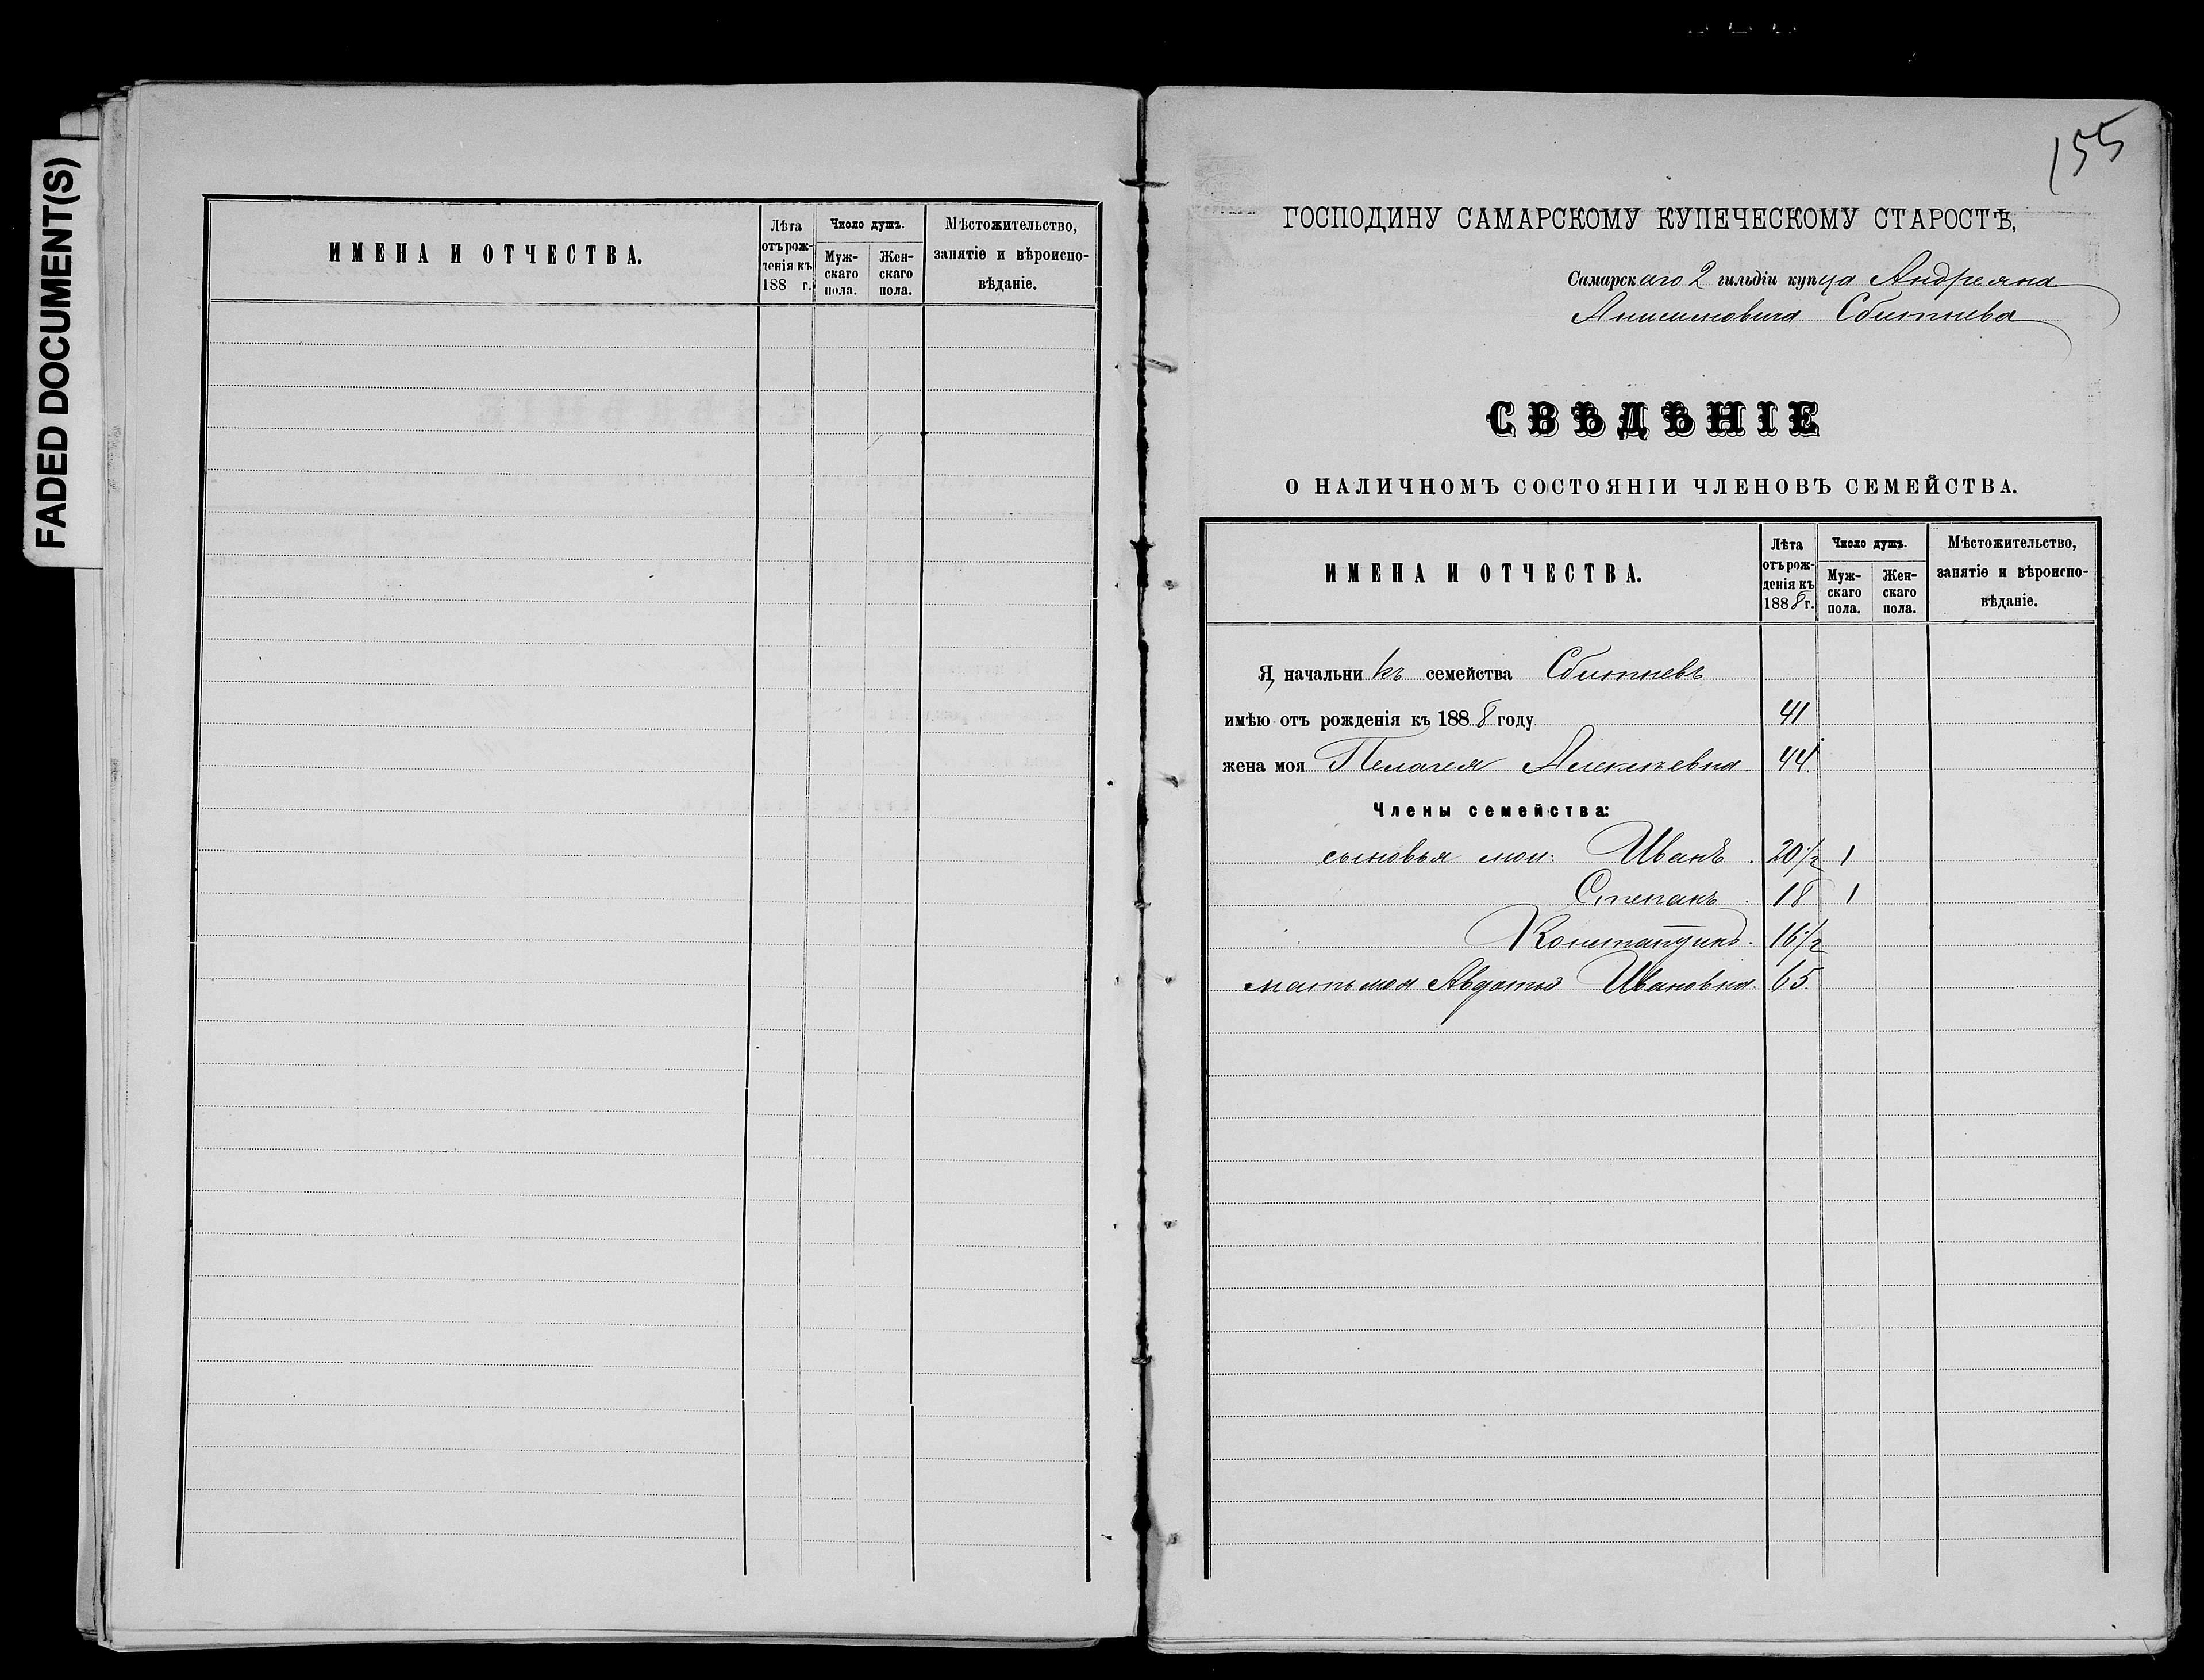 FADED DOCUMENT(S)
ИМЕНА И ОТЧЕСТВА.
Лѣта
отъ рож-
денія къ
188 г.
Число душъ.
Муж-
скаго
пола.
Жен-
скаго
пола.
Мѣстожительство,
занятіе и вѣроиспо-
вѣданіе.
155
ГОСПОДИНУ САМАРСКОМУ КУПЕЧЕСКОМУ СТАРОСТѢ,
Самарскаго 2 гильдіи купца Андреяна
Анисимовича Сбитнева
СВѢДѢНІЕ
О НАЛИЧНОМЪ СОСТОЯНІИ ЧЛЕНОВЪ СЕМЕЙСТВА.
ИМЕНА И ОТЧЕСТВА.
Лѣта
отъ рож-
денія къ
1888 г.
Число душъ.
Муж-
скаго
пола.
Жен-
скаго
пола.
Мѣстожительство,
занятіе и вѣроиспо-
вѣданіе.
Я, начальникъ семейства Сбитневъ
имѣю отъ рожденія къ 1888 году 41
жена моя Пелагея Алексѣевна. 44.
Члены семейства:
сыновья мои: Иванъ. 20 1/2 1
Степанъ. 18 1
Константинъ. 16 1/2
мать моя Авдотья Ивановна. 65.